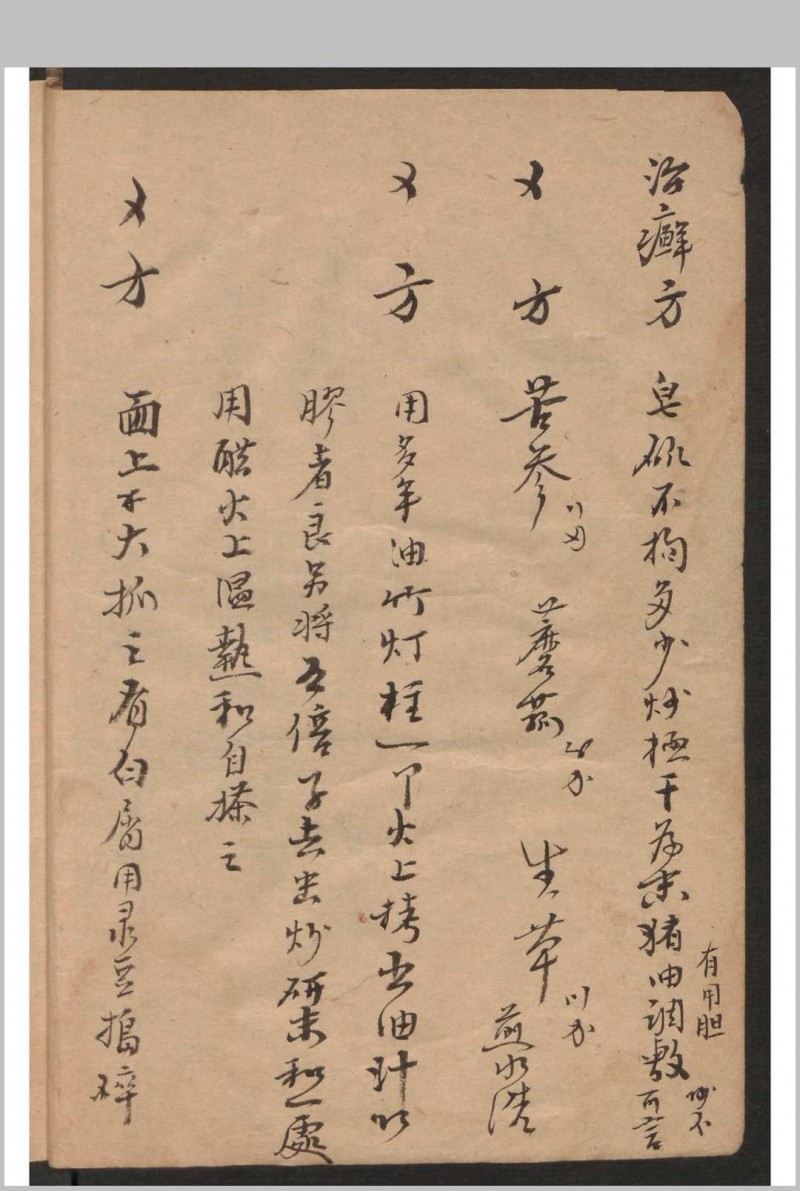 治癣方 皂矾不拘多少炒極干为末猪油調敷 妙不可言
有用胆
又方 苦參 蘑菰 生草 煎水洗
又方 用多年油竹灯柱一个火上烤出油汁以
膠者良另将五倍子去虫炒研末和一處
用醋火上温熱和自搽之
又方 面上不大抓之有白屑用彔豆搗碎